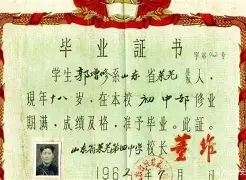 毕业证书
学生郭增修系山东省莱芜县人，
现年十八岁，在本校初中部修业
期满，成绩及格，准予毕业。此证。
山东省莱芜第四中学校长
196 年7月 日